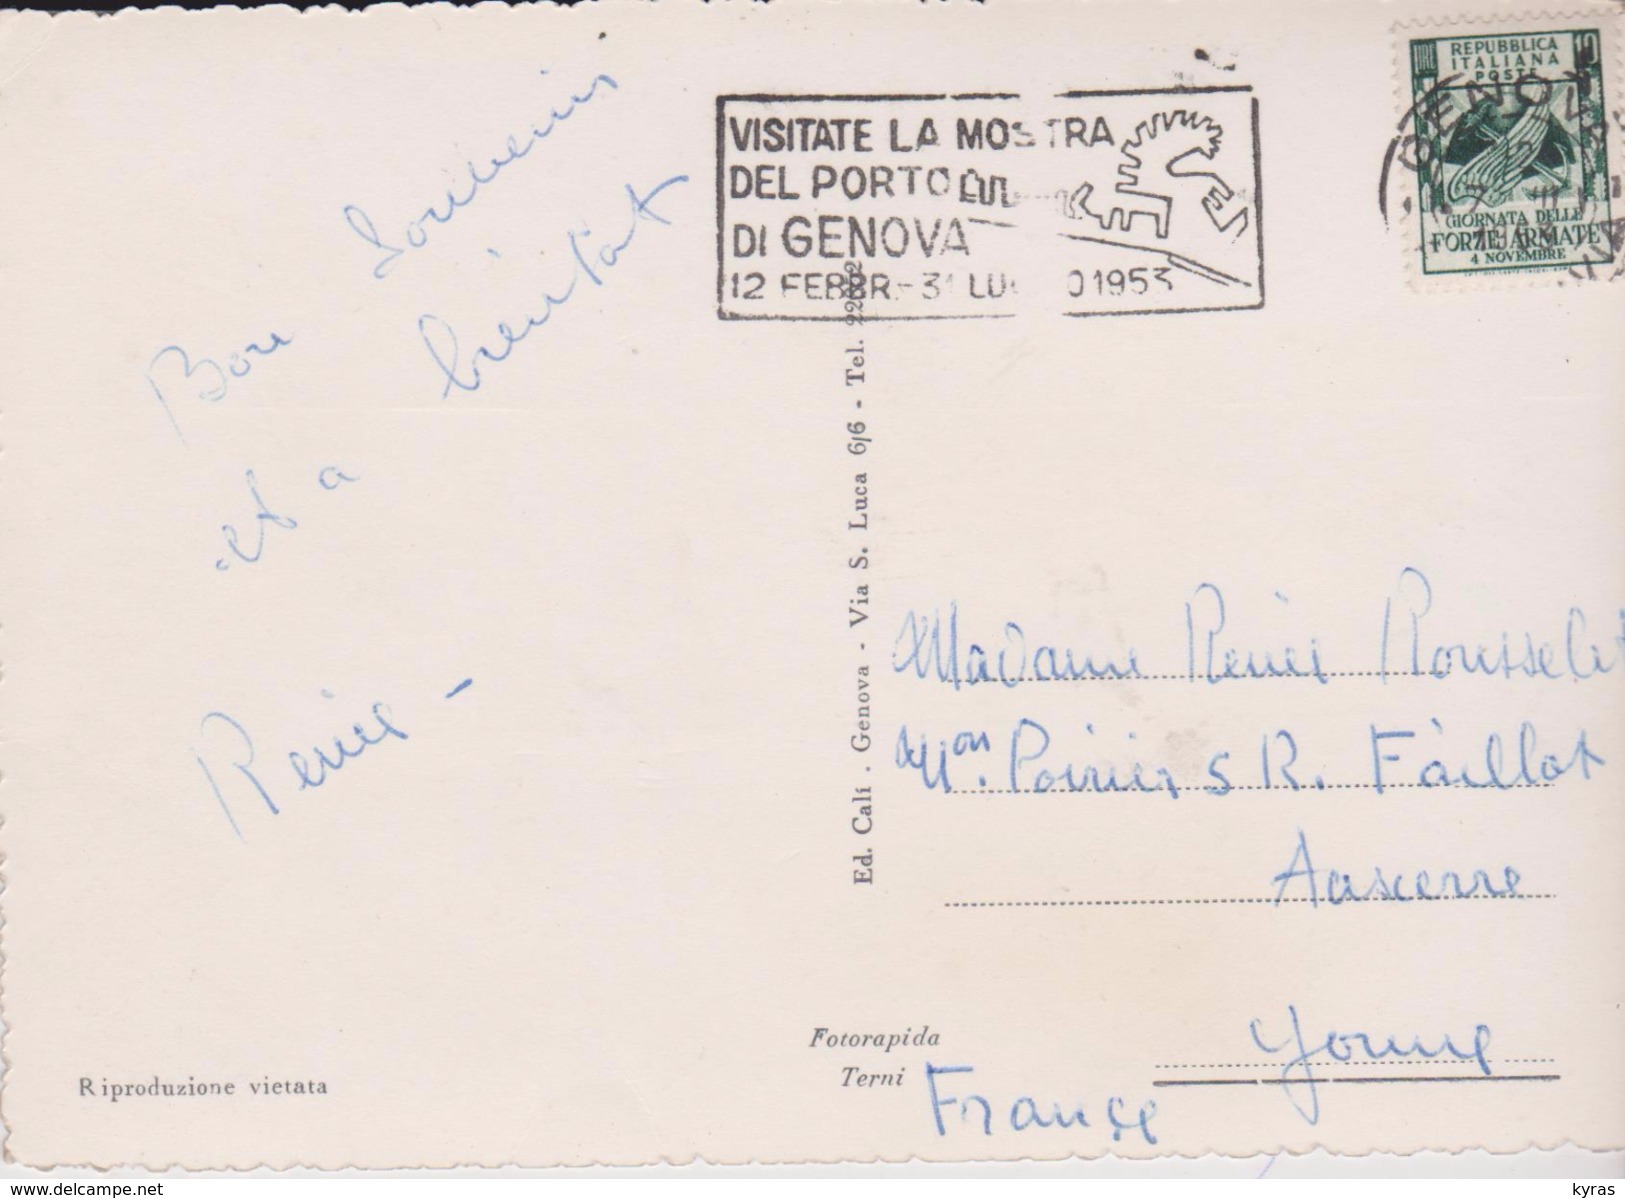 Bon Souvenir
et a bientot
Renée -
VISITATE LA MOSTRA
DEL PORTO
DI GENOVA
12 FEBBR.- 31 LUGLIO 1953
LIRE 10
REPUBBLICA
ITALIANA
POSTE
GIORNATA DELLE
FORZE ARMATE
4 NOVEMBRE
GENOVA
Ed. Cali . Genova - Via S. Luca 6/6 - Tel.
Madame Renée Rousselet
Mon. Poirier 5 R. Faillot
Auxerre
Yonne
France
Fotorapida
Terni
Riproduzione vietata
www.delcampe.net
kyras